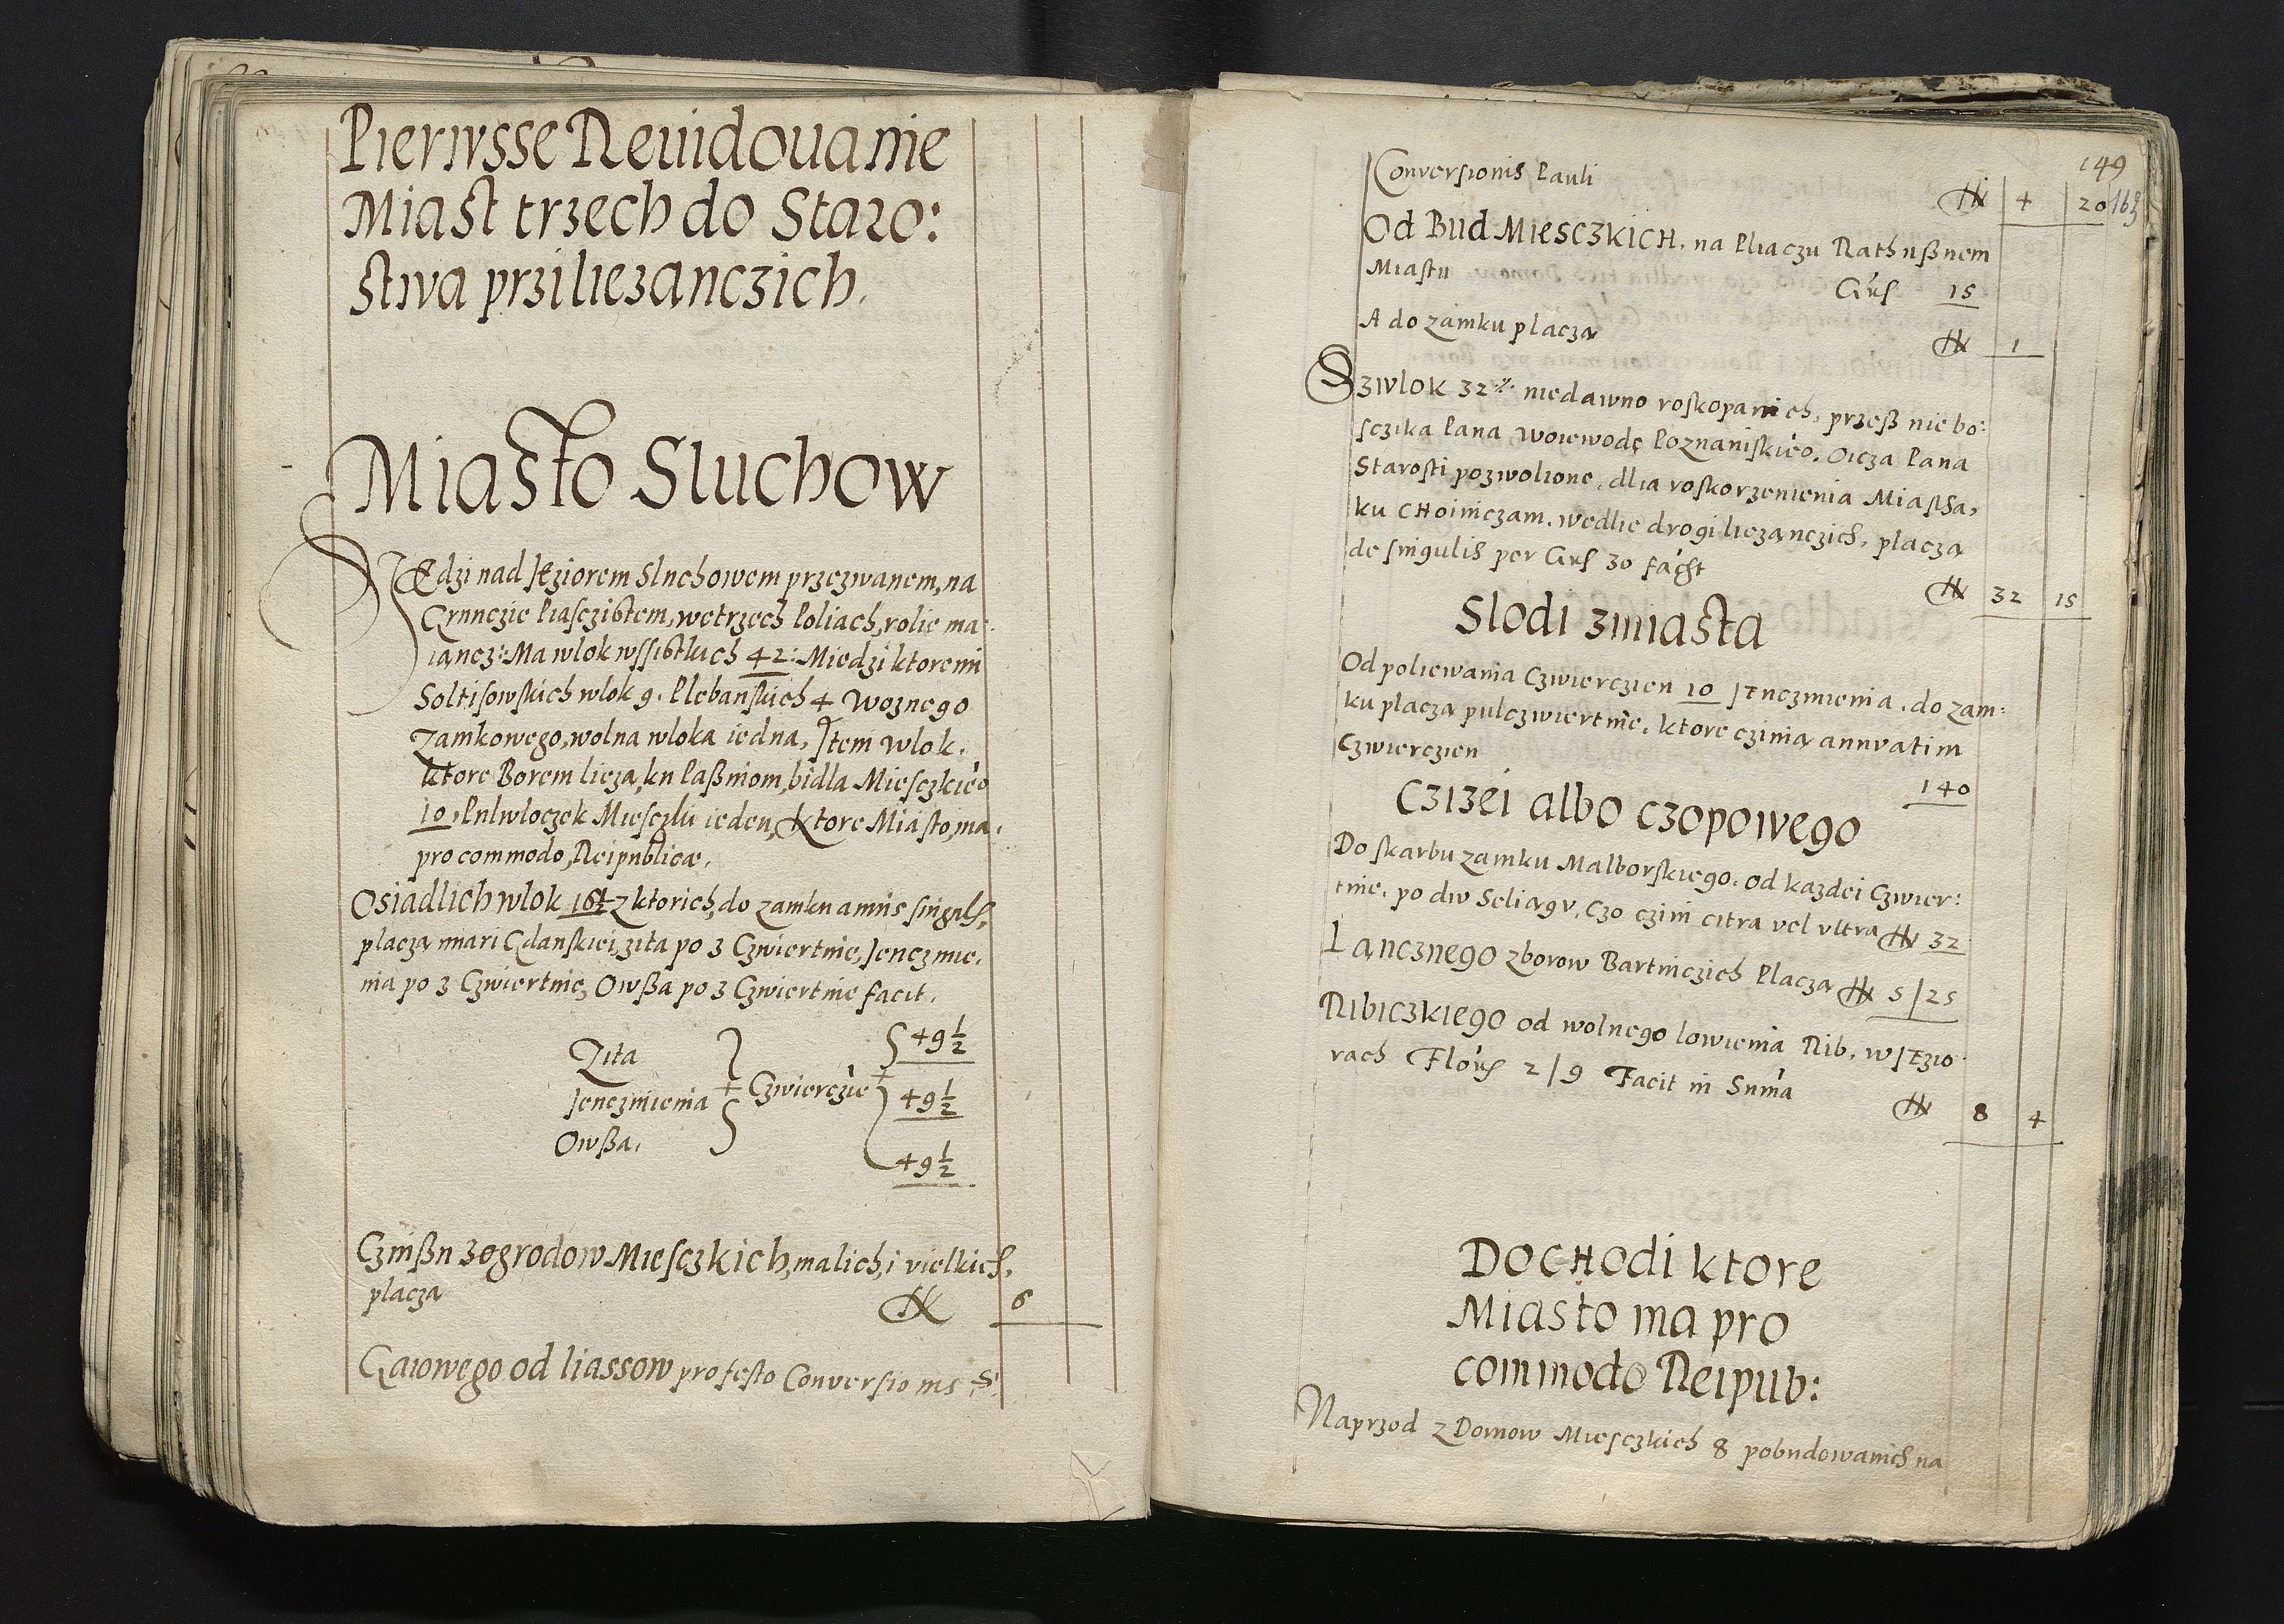 Pierwsse Revidouanie
Miast trzech do Staro:
stwa prziliezanczich.
Miasto Sluchow
SIedzi nad JEziorem Sluchowem przezwanem, na
Grunczie Piasczistem, wetrzech Poliach, rolie ma-
iancz: Ma wlok wssistkich 42: Miedzi ktoremi
Soltisowskich wlok 9. Plebanskich 4 Woznego
Zamkowego, wolna wloka iedna, Item wlok.
ktore Borem lieza, ku Paßniom, bidla Miesczkieo
10, Pulwloczek Miesczki ieden, ktore Miasto, ma.
pro commodo, Reipublicæ.
Osiadlich wlok 16½ z ktorich, do zamku annis singulß,
placzą miari Gdanskiei, zita po 3 Czwiertnie, Jenczmie.
nia po 3 Czwiertnie, Owßa po 3 Czwiertnie facit.
Zita 49½
Jenczmienia Czwierczie 49½
Owßa. 49½
Czinßu z ogrodow Miesczkich, malich, i vielkich,
placzą 6
Gaiowego od liassow pro festo Conversionis S.
149
Conversionis Pauli 4 20
Od Bud Miesczkich. na Pliaczu Rathußnem
Miastu Grß 15
A do zamku placzą 1
Zwlok 32 niedawno roskopanich, przeß niebo:
sczika Pana Woiewodę Poznaniskieo. Oicza Pana
Starosti pozwolione, dlia roskorzenienia Miasta,
ku CHoiniczam. wedlie drogi liezanczich, placzą
de singulis per Grß 30 facit 32 15
Slodi zmiasta
Od poliewania Czwierczien 10 JEnczmienia. do zam:
ku placzą pulczwiertnie. ktore czinią annuatim
Czwierczien 140
Czizei albo czopowego
Do skarbu zamku Malborskiego. od kazdei Czwier:
tnie. po dw Seliągu. Czo czini citra vel ultra 32
Lancznego zborow Bartniczich Placzą 5 | 25
Ribiczkiego od wolnego lowienia Rib. w JEzio
rach Florß 2 / 9 Facit in Suma 8 4
DOCHOdi ktore
Miasto ma pro
commodo Reipub:
Naprzod z Domow Miesczkich 8 pobudowanich na